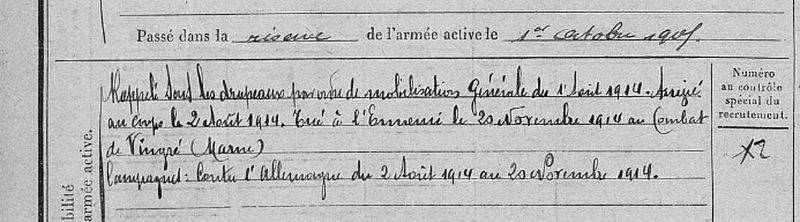 Passé dans la réserve de l'armée active le 1er octobre 1905
Rappelé sous les drapeaux par ordre de mobilisation Générale du 1er Août 1914. Arrivé
au corps le 2 Août 1914. Tué à l'Ennemi le 20 Novembre 1914 au Combat
de Vingré (Marne)
Campagnes: Contre l'Allemagne du 2 Août 1914 au 20 Novembre 1914.
Numéro
au contrôle
spécial du
recrutement.
armée active.